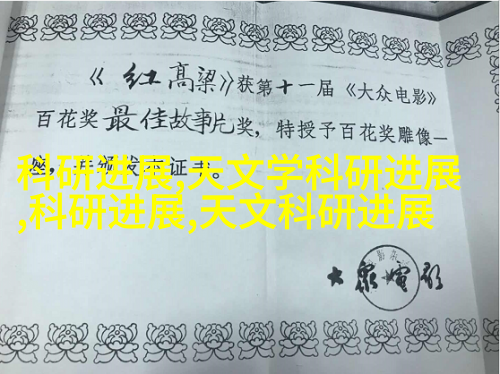 《红高粱》获第十一届《大众电影》
百花奖最佳故事片奖，特授予百花奖雕像一
座，并颁发证书。
科研进展,天文学科研进展
,科研进展,天文科研进展
大眾電影